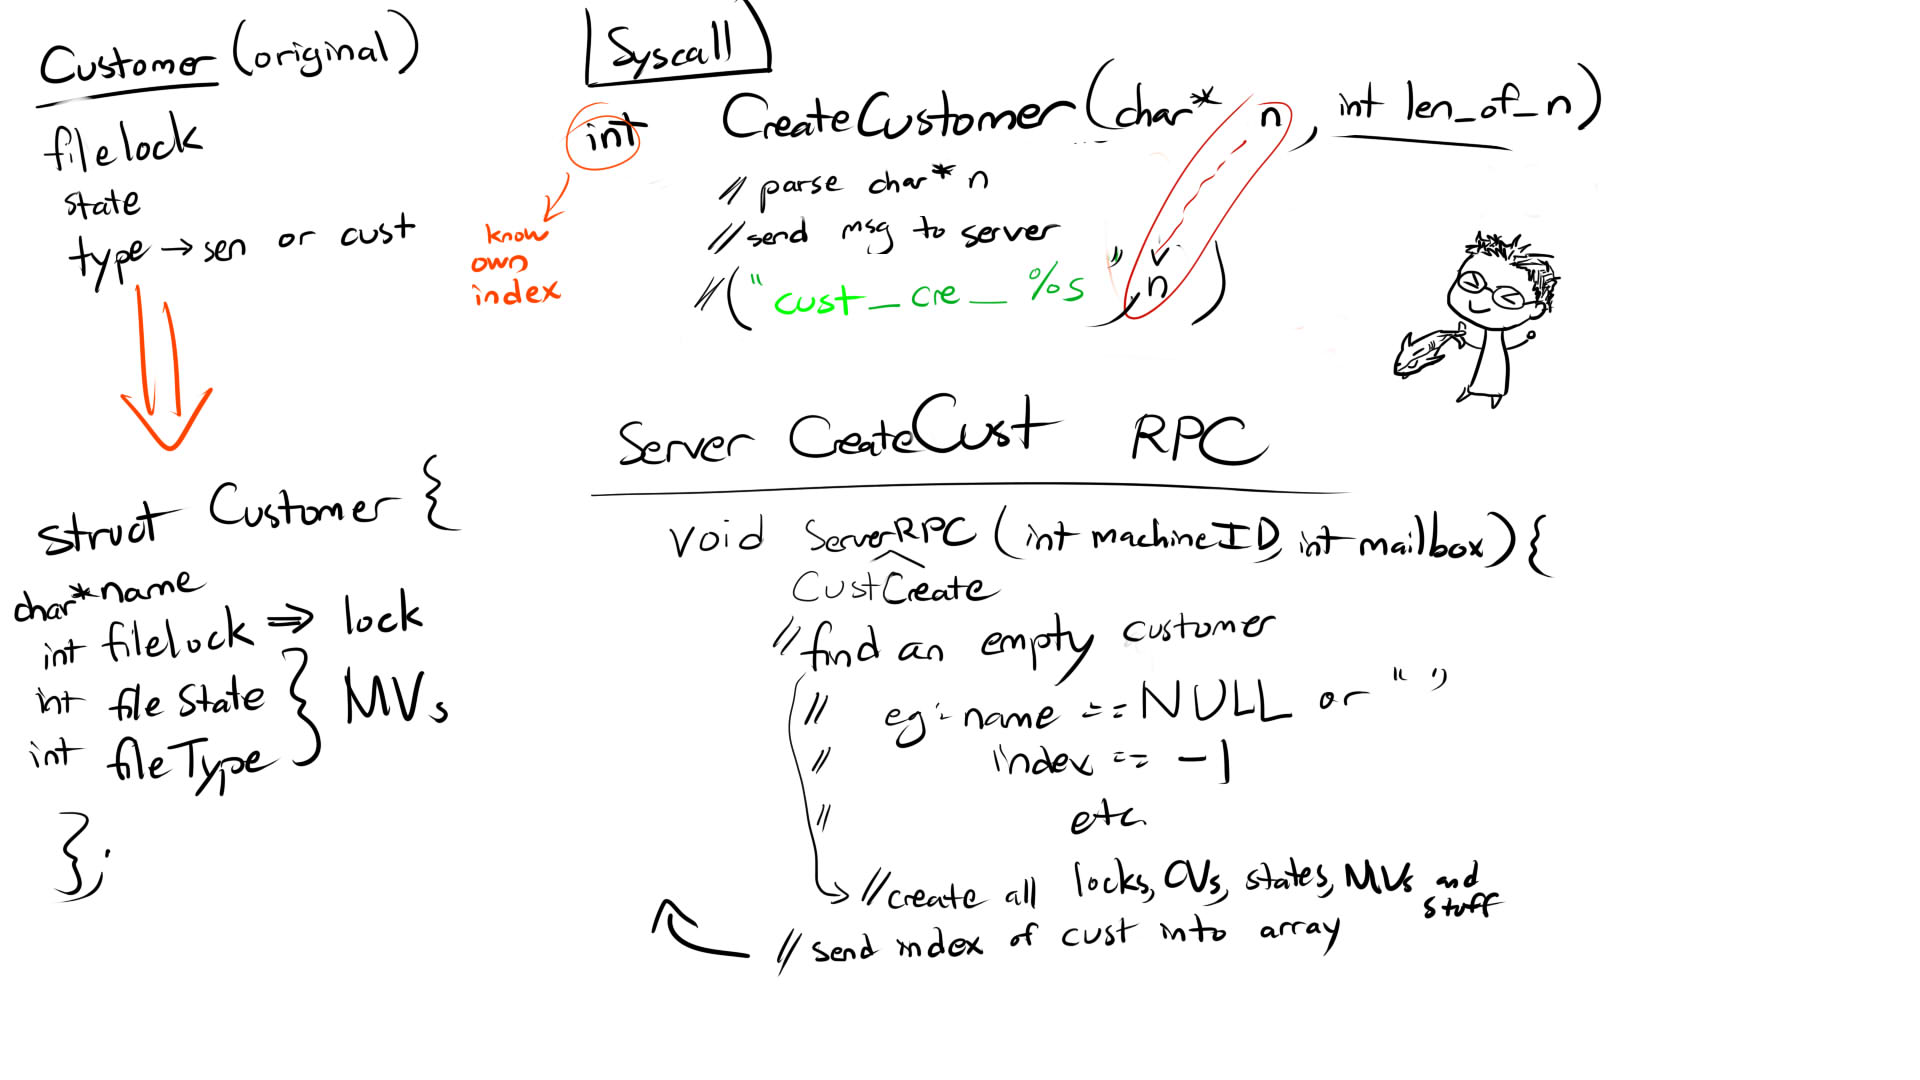 Customer (original)
filelock
state
type → sen or cust
struct Customer {
char* name
int filelock ⇒ lock
int file State
int file Type } MVs
};
Syscall
int CreateCustomer (char* n, int len_of_n)
// parse char* n
// send msg to server
// ("cust_cre_%s", n)
know
own
index
Server CreateCust RPC
void ServerRPC (int machineID, int mailbox) {
CustCreate
// find an empty customer
// eg: name == NULL or " "
// index == -1
// etc.
// create all locks, CVs, states, MVs and
stuff
// send index of cust into array